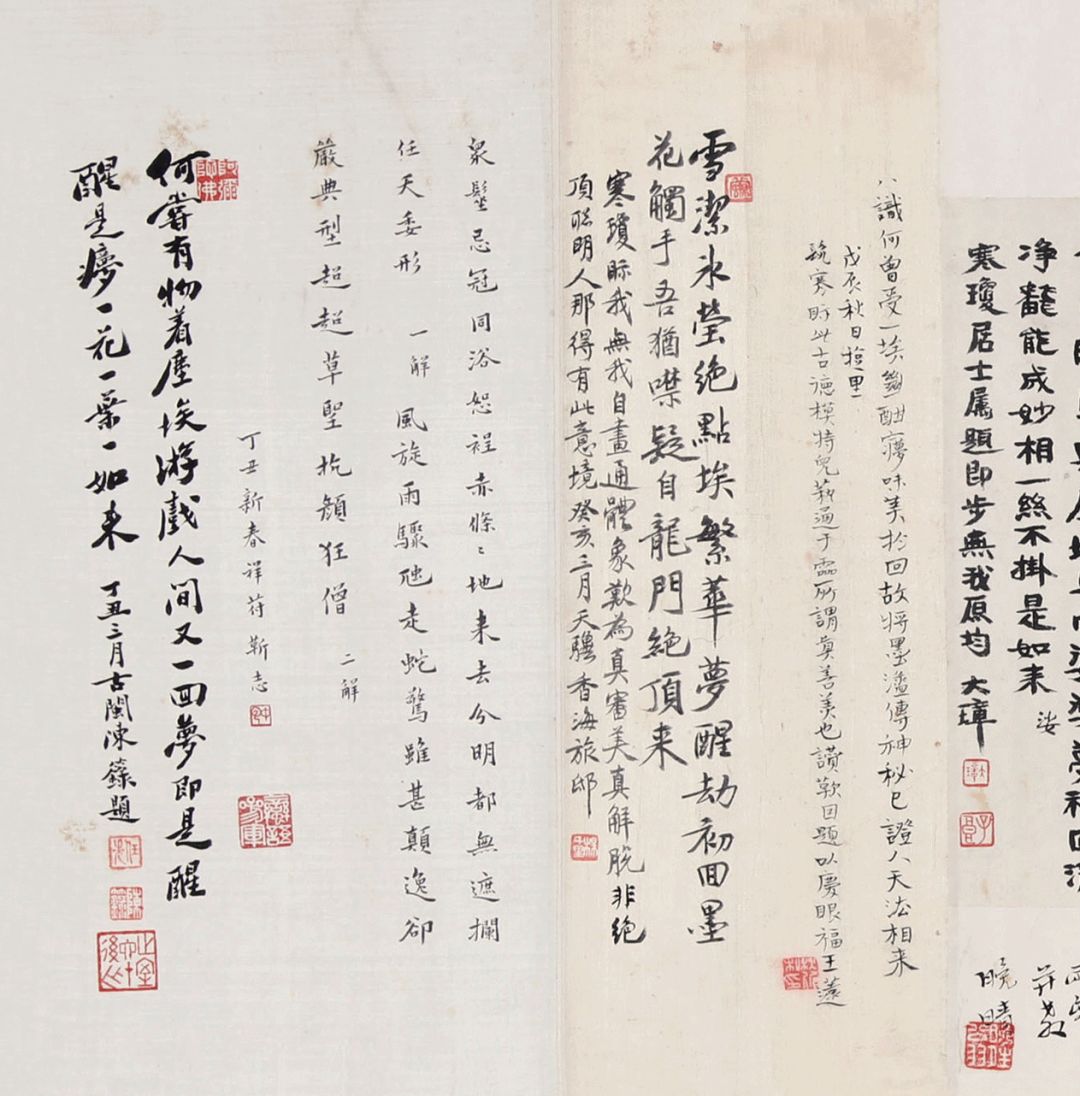 净麤能成妙相一絲不掛是如来
寒瓊居士属題即步無我原均 大璋
晓晴
八識何曾受一埃 酣寱味美於回故将墨瀋傳神秘已證人天法相来
戊辰秋日
寒 此古德模特兒 通于 所謂真善美也讚歎因題以慶眼福王薳
雪潔氷瑩绝點埃繁華夢醒劫初回墨
花觸手吾猶噤疑自龍門絶頂来
寒瓊眎我無我自畫通體象歎為真審美真解脫非绝
頂聪明人那得有此意境癸亥三月天 香海旅邸
衆髮忌冠同浴恕裎赤條〻地来去分明都無遮攔
任天委形 一解 風旋雨驟虺走蛇驚雖甚顛逸卻
嚴典型超超草聖抗顏狂僧 二解
丁丑新春祥符靳志
何嘗有物着塵埃游戲人間又一回夢即是醒
醒是寱一花一葉一如来 丁丑三月古閩陳籙題